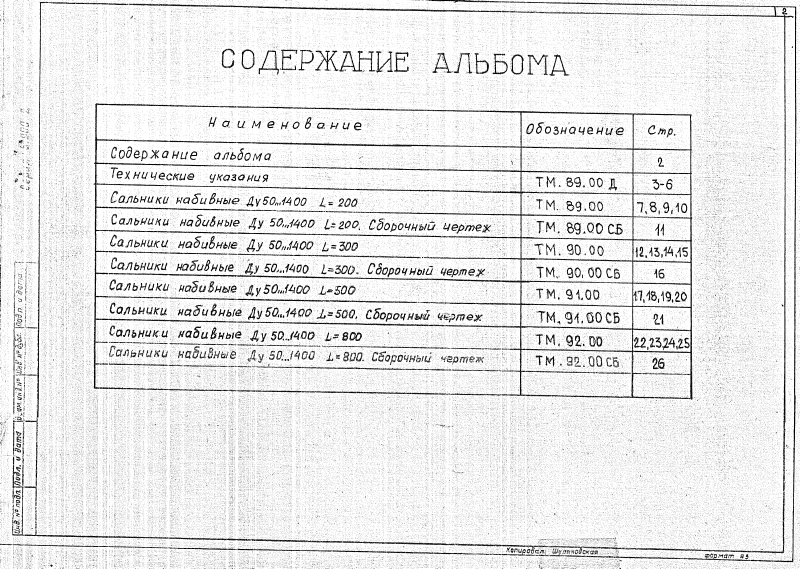 2
СОДЕРЖАНИЕ АЛЬБОМА
Наименование Обозначение Стр.
Содержание альбома 2
Технические указания ТМ. 89.00 Д 3-6
Сальники набивные Ду 50...1400 L=200 ТМ. 89.00 7,8,9,10
Сальники набивные Ду 50...1400 L=200. Сборочный чертеж ТМ. 89.00 СБ 11
Сальники набивные Ду 50...1400 L=300 ТМ. 90.00 12,13,14,15
Сальники набивные Ду 50...1400 L=300. Сборочный чертеж ТМ. 90.00 СБ 16
Сальники набивные Ду 50...1400 L=500 ТМ. 91.00 17,18,19,20
Сальники набивные Ду 50...1400 L=500. Сборочный чертеж ТМ. 91.00 СБ 21
Сальники набивные Ду 50...1400 L=800 ТМ. 92.00 22,23,24,25
Сальники набивные Ду 50...1400 L=800. Сборочный чертеж ТМ. 92.00 СБ 26
Инв. № подл. Подп. и дата Взам. инв. № Инв. № дубл. Подп. и дата
Копировал: Шуляковская формат А3